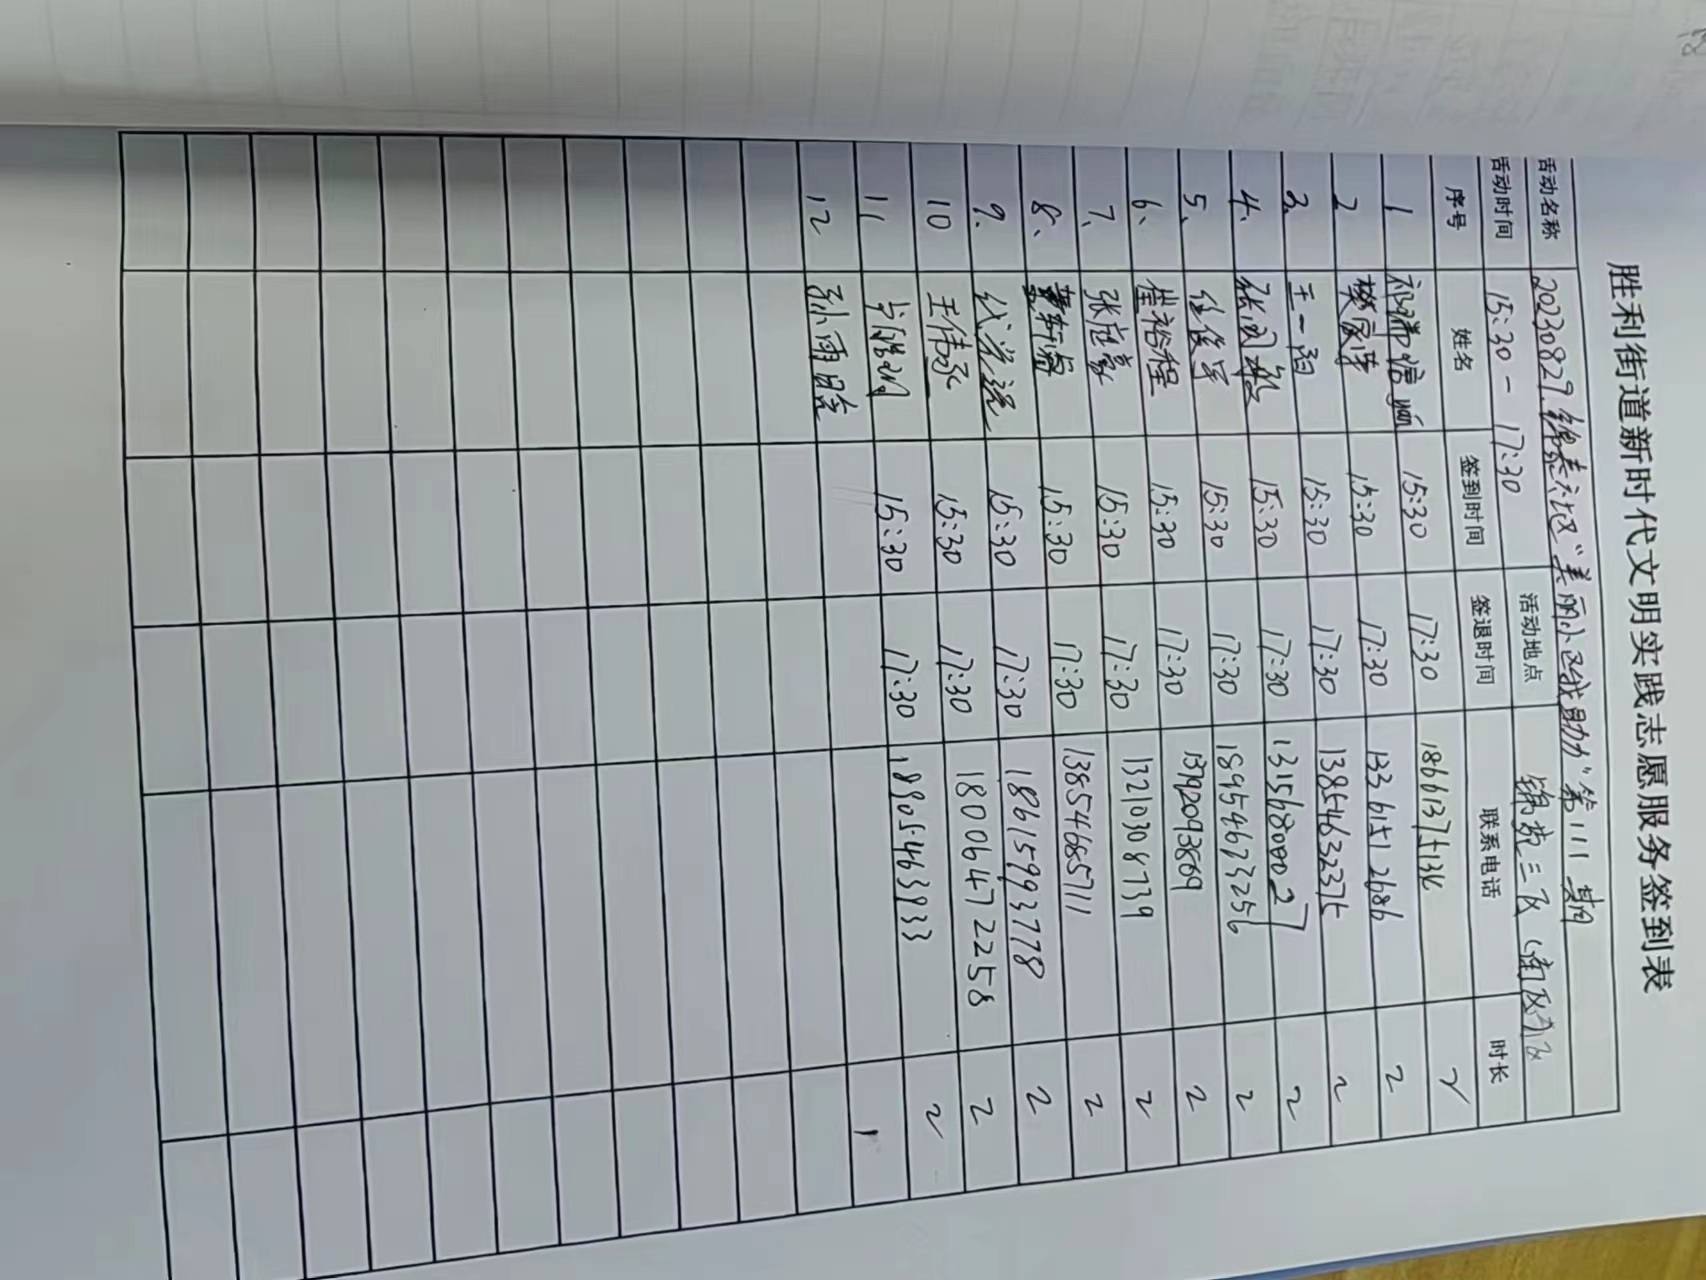 胜利街道新时代文明实践志愿服务签到表
活动名称 20230829锦泰社区“美丽小区我助力”第111期
活动时间 15:30-17:30 活动地点 锦苑三区(南区)
序号 姓名 签到时间 签退时间 联系电话 时长
1 15:30 17:30 2
2 樊家 15:30 17:30 13361512686 2
3、 王一 15:30 17:30 13854632375 2
4、 张 15:30 17:30 13156800027 2
5、 任俊 15:30 17:30 18954673256 2
6、 崔裕程 15:30 17:30 13792093869 2
7、 张 豪 15:30 17:30 13210308739 2
8、 轩 15:30 17:30 13854685711 2
9、 代 15:30 17:30 18615993778 2
10 王伟 15:30 17:30 18006472258 2
11 15:30 17:30 18905463933 2
12 孙雨晗 1